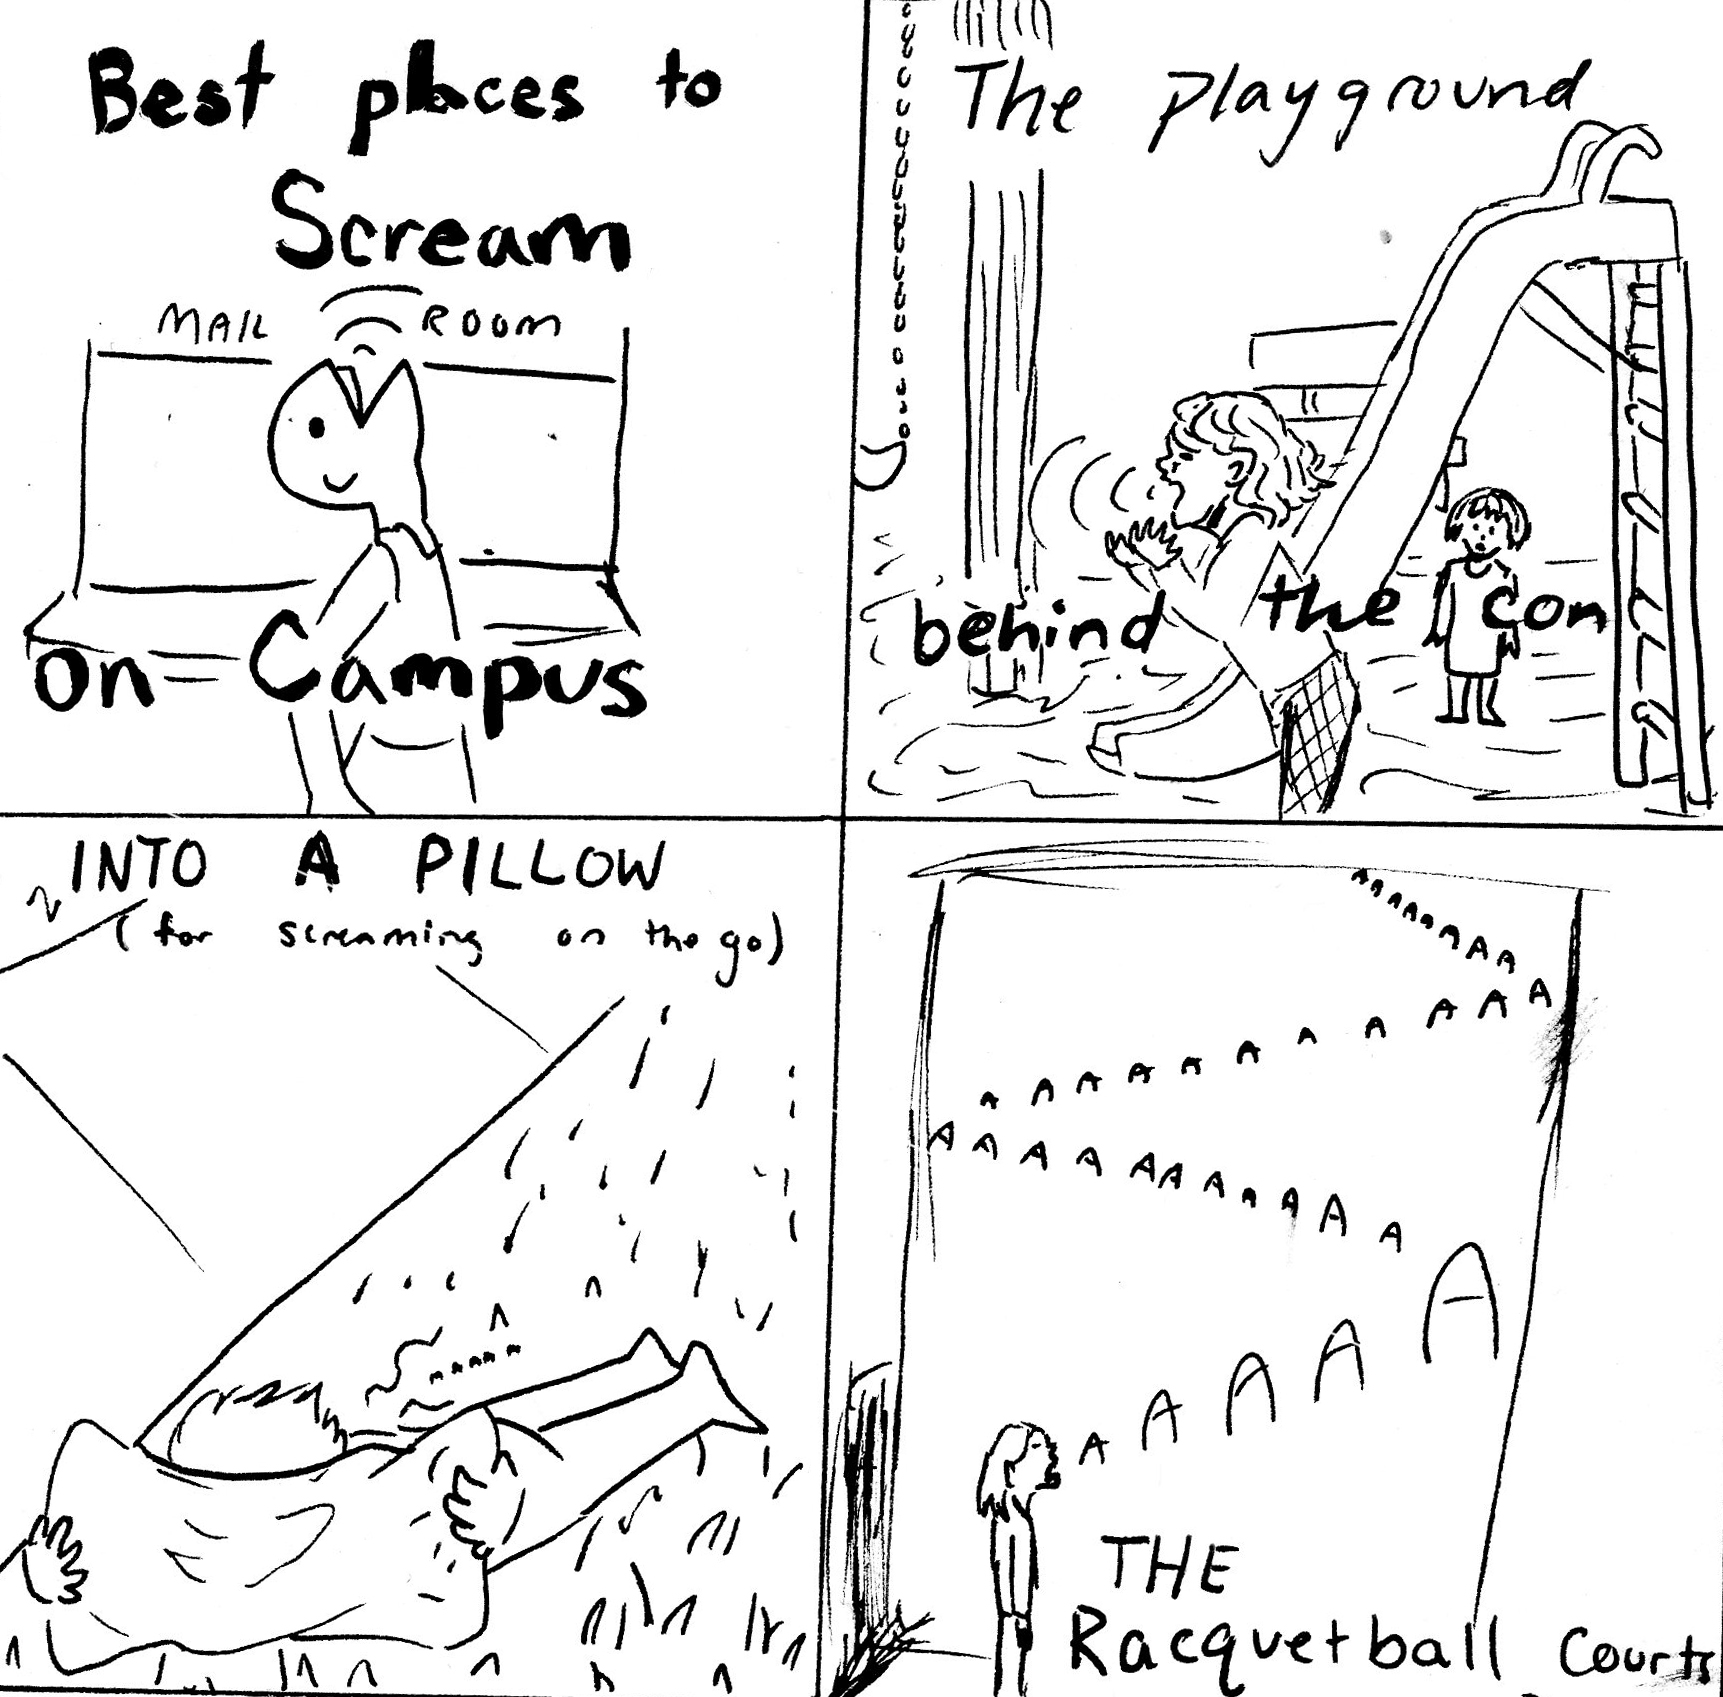 Best places to
Scream
MAIL ROOM
on Campus
The playground
behind the con
INTO A PILLOW
(for screaming on the go)
AAAAAAAAAAA
A A A A A A A A A A A
A A A A A A A A A A A
A A A A A
THE
Racquetball Courts